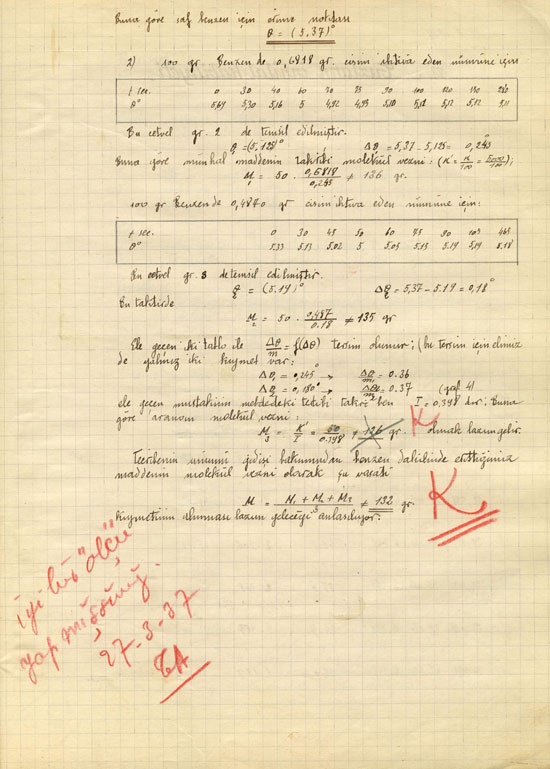 Buna göre saf benzen için erime noktası
θ = (5,37)°
2) 100 gr. Benzende 0,6818 gr. cisim ihtiva eden nümüne için
t sec. 0 30 40 60 70 75 90 100 120 150 210
θ° 5,69 5,30 5,16 5 4,92 4,93 5,10 5,12 5,12 5,12 5,11
Bu cetvel gr. 2 de temsil edilmiştir.
θ = (5,125)° Δθ = 5,37 - 5,125 = 0,245°
Buna göre münhal maddenin takribi molekül vezni:
M₁ = 50 · 0,6818 / 0,245 ≠ 136 gr.
100 gr Benzende 0,4870 gr cisim ihtiva eden nümüne için:
t sec. 0 30 45 50 60 75 90 105 465
θ° 5,33 5,13 5,02 5 5,05 5,15 5,19 5,19 5,18
Bu cetvel gr. 3 de temsil edilmiştir.
θ = (5.19)° Δθ = 5,37 - 5,19 = 0,18°
Bu takdirde
M₂ = 50 · 0,487 / 0.18 ≠ 135 gr
Ele geçen iki tablo ile Δθ/m = f(Δθ) tersim olunur; (bu tersim için elimiz
de yalnız iki kıymet var:
Δθ₁ = 0,245° → Δθ₁/m₁ = 0.36
Δθ₂ = 0,180° → Δθ₂/m₂ = 0.37 (graf. 4)
ele geçen mustakimin mebdedeki I = 0,398 dır. Buna
göre aranan molekül vezni:
M₃ = K'/I = 50/0.398 ≠ 126 gr. K olmak lazım gelir.
Tecrübenin umumi gidişi bakımından benzen dahilinde erittiğimiz
maddenin molekül vezni olarak şu vasati
M = M₁ + M₂ + M₃ / 3 ≠ 132 gr
kıymetinin alınması lazım geleceği anlaşılıyor.
K
iyi bir "ölçü"
yapmışsınız.
27-3-37